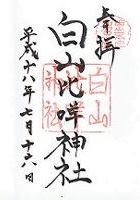 奉拝
白山比咩神社
平成十八年七月十六日
白山